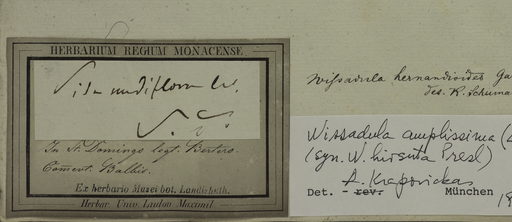 HERBARIUM REGIUM MONACENSE
Sida nudiflora
In St. Domingo legt. Bertero.
Comm. Balbis.
Ex herbario Musei bot. Landishuth.
Herbar. Univ. Ludov. Maximil.
Wissadula hernandioides Ga
des. K. Schuma
Wissadula amplissima (
(syn. W. hirsuta Presl)
A. Krapovickas
Det. - rev. München 19